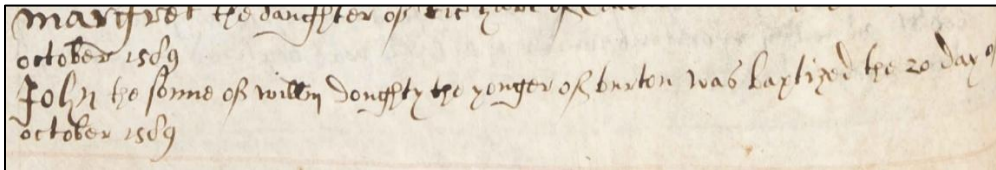 margret the daughter of ric
october 1589
John the sonne of willm doughty the yonger of burton was baptized the 20 day of
october 1589